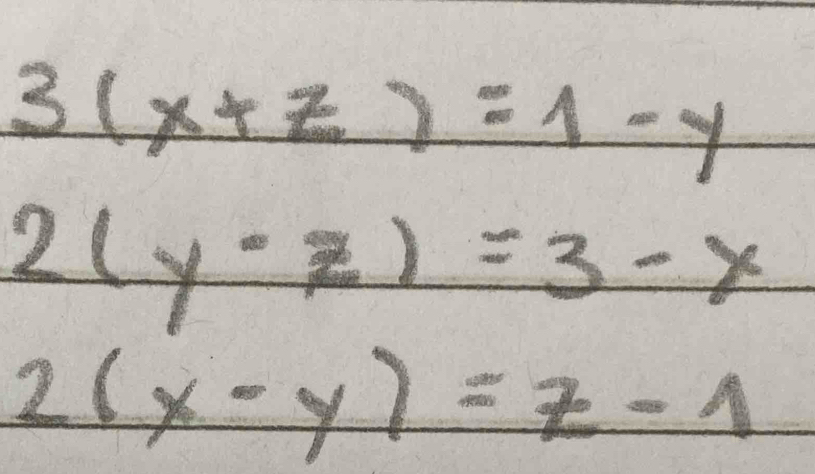 3(x+z)=1-y
2(y-z)=3-x
2(x-y)=z-1